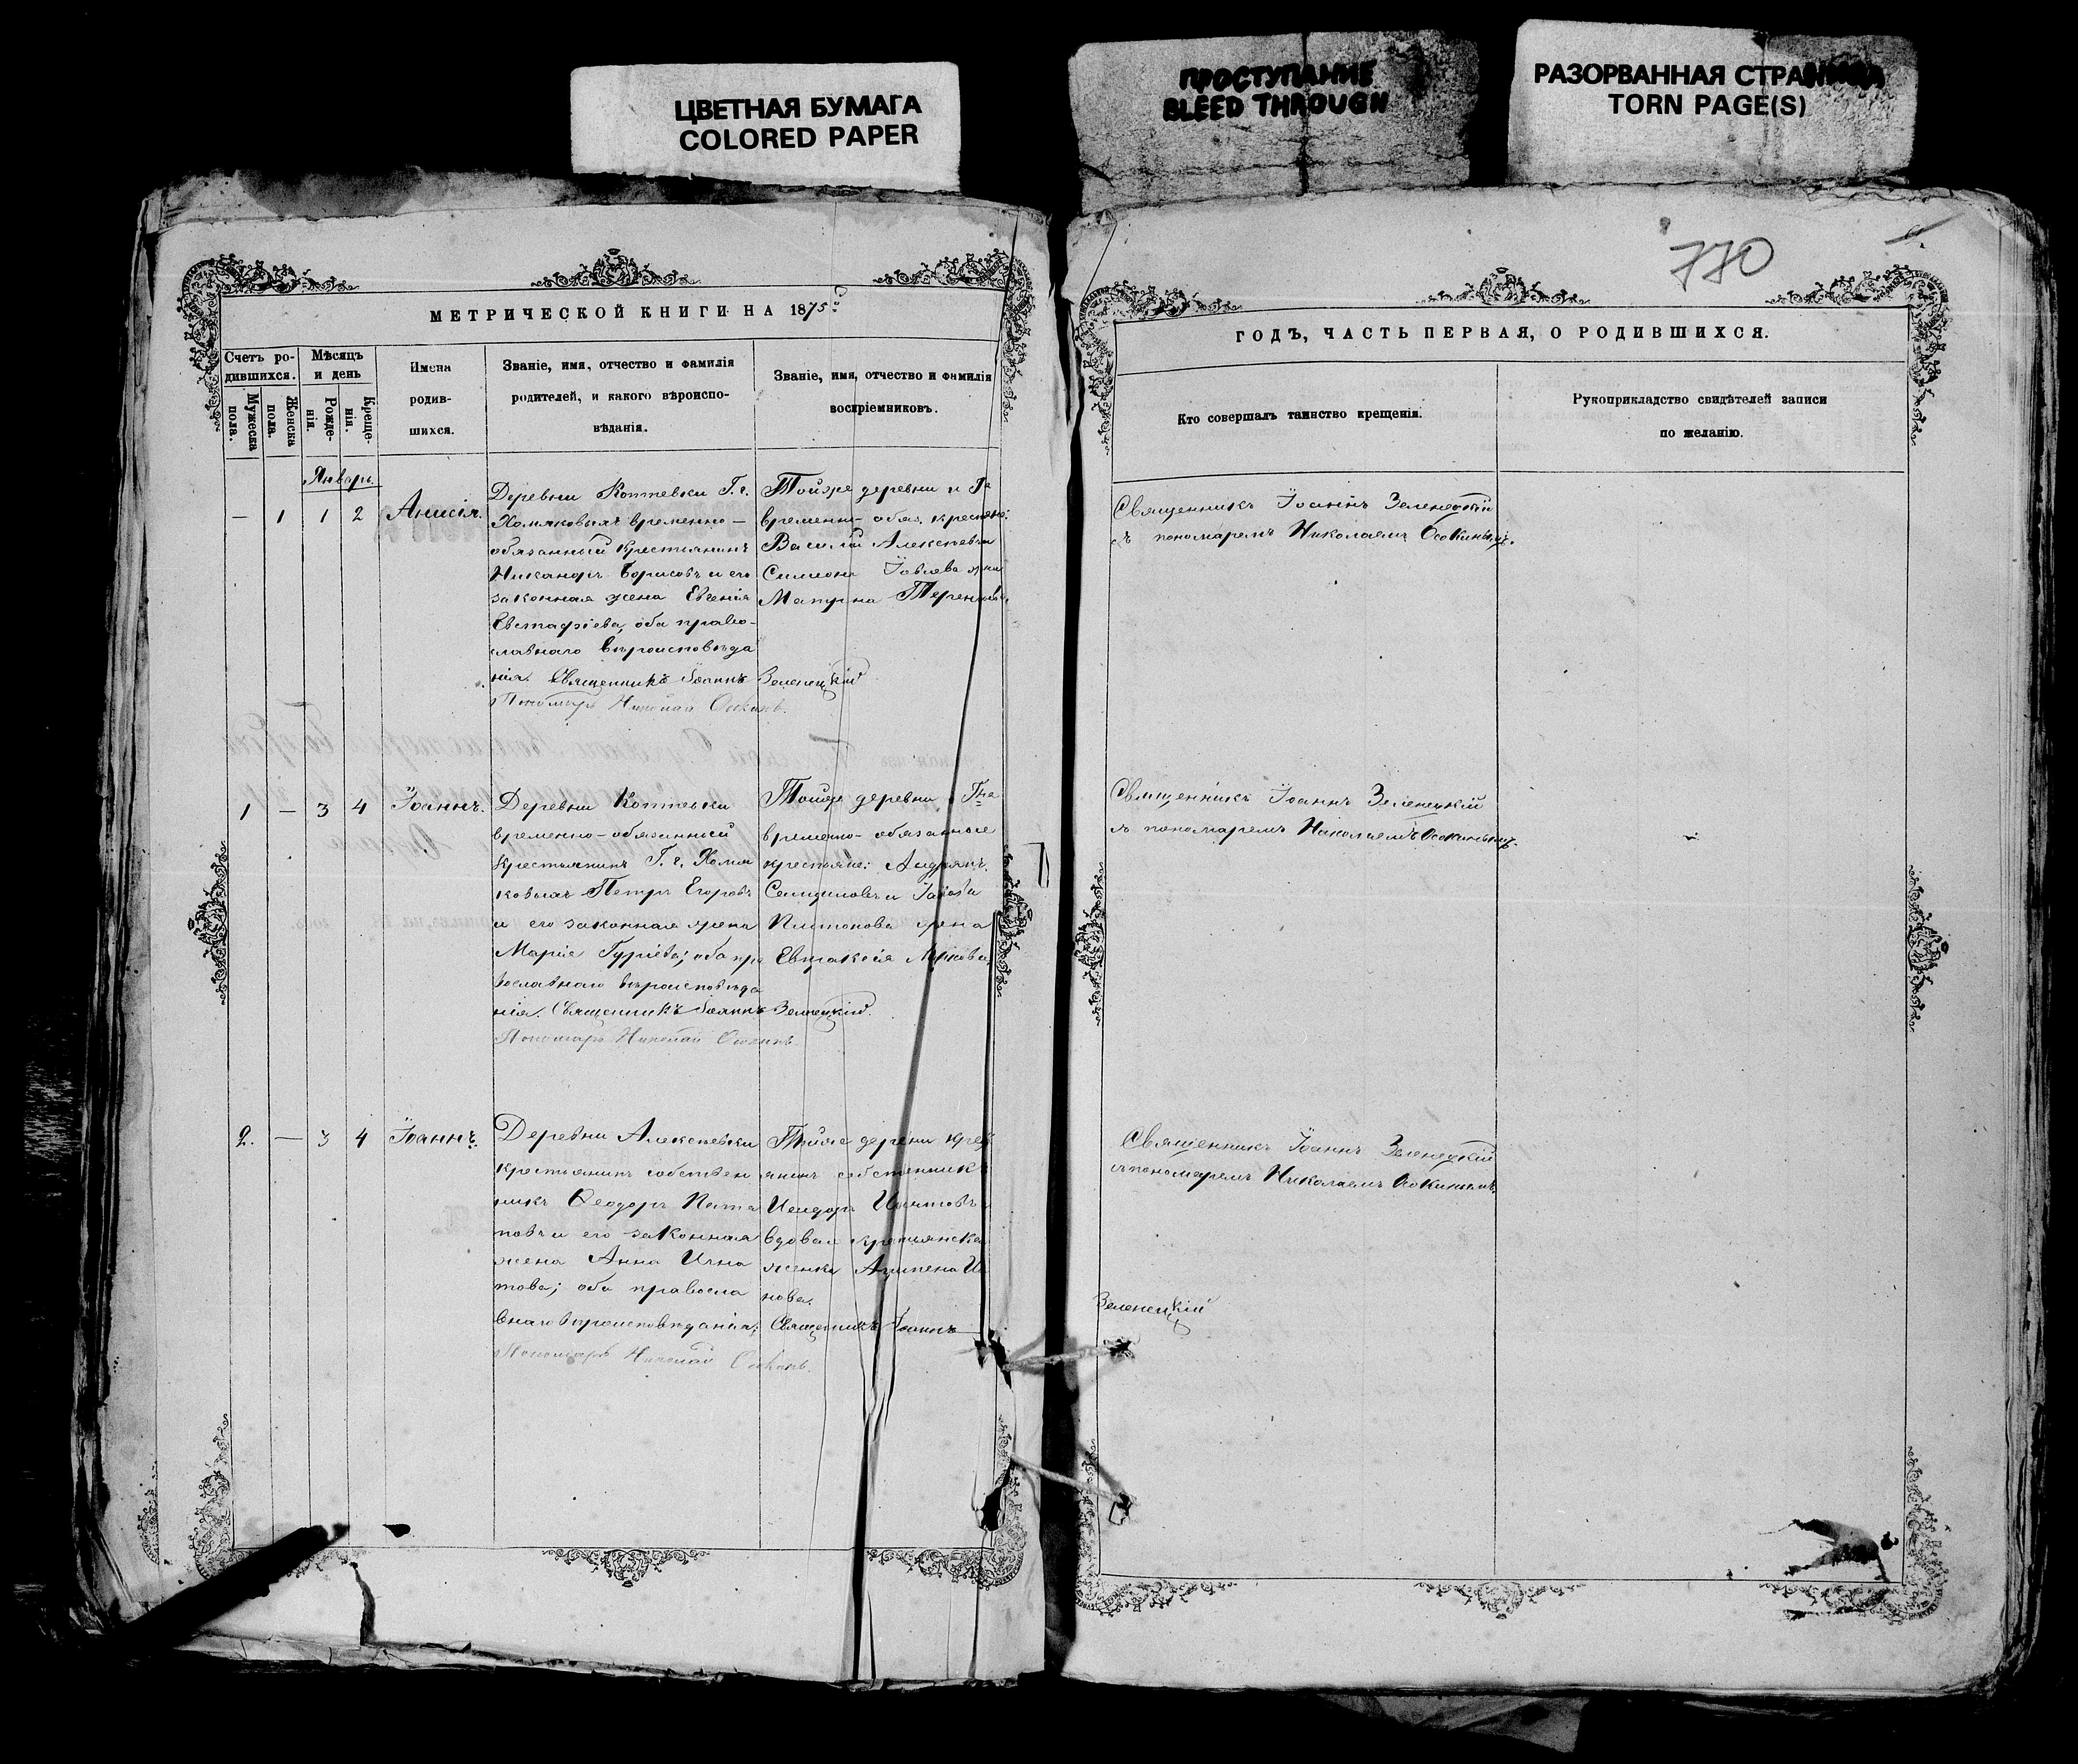 ЦВЕТНАЯ БУМАГА
COLORED PAPER
ПРОСТУПАНИЕ
BLEED THROUGH
РАЗОРВАННАЯ СТРАНИЦА
TORN PAGE(S)
770
МЕТРИЧЕСКОЙ КНИГИ НА 1875
Счетъ ро-
дившихся.
Мужеска
пола.
Женска
пола.
Мѣсяцъ
и день
Рожде-
нія.
Креще-
нія.
Имена
родив-
шихся.
Званіе, имя, отчество и фамилія
родителей, и какого вѣроиспо-
вѣданія.
Званіе, имя, отчество и фамилія
воспріемниковъ.
Январь
— 1 1 2 Анисія.
Деревни Коптевки Г. г.
Хомяковыхъ временно-
обязанный крестьянинъ
Никаноръ Борисовъ и его
законная жена Евгенія
Евстафіева, оба право-
славнаго вѣроисповѣда
нія. Священникъ Іоаннъ Зеленецкій
Пономарь Николай Осокинъ.
Тойже деревни и
временно-обяз. крестьяне:
Василій Алексѣевъ и
Симеона Іовлева жена
Матрона
1 — 3 4 Іоаннъ.
Деревни Коптевки
временно-обязанный
крестьянинъ Г. г. Хомя
ковыхъ Петръ Егоровъ
и его законная жена
Марія Гурьева; оба пра
вославнаго вѣроисповѣда
нія. Священникъ Іоаннъ Зеленецкій.
Пономарь Николай Осокинъ.
Тойже деревни
временно-обязанные
крестьяне: Андріянъ
и Іакова
Платонова жена
Евпраксія
2. — 3 4 Іоаннъ.
Деревни Алексѣевки
крестьянинъ собствен
никъ Ѳеодоръ Пота
повъ и его законная
жена Анна Игна
това; оба правосла
внаго вѣроисповѣданія;
Пономарь Николай Осокинъ.
Тойже деревни крес
янинъ собственникъ
Исидоръ
вдовая крестьянская
женка Агрипена
нова.
Священникъ Іоаннъ
Зеленецкій
ГОДЪ, ЧАСТЬ ПЕРВАЯ, О РОДИВШИХСЯ.
Кто совершалъ таинство крещенія.
Рукоприкладство свидѣтелей записи
по желанію.
Священникъ Іоаннъ Зеленецкій
съ пономаремъ Николаемъ Осокинымъ.
Священникъ Іоаннъ Зеленецкій
съ пономаремъ Николаемъ Осокинымъ.
Священникъ Іоаннъ Зеленецкій
съ пономаремъ Николаемъ Осокинымъ.